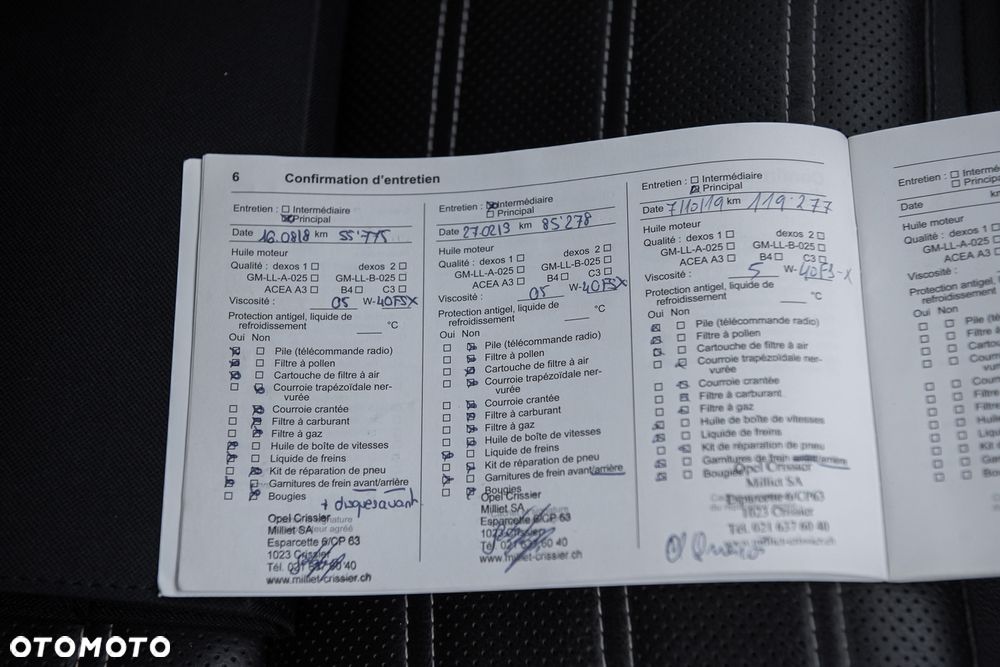 6 Confirmation d'entretien
Entretien : Intermédiaire
Principal
Date 16.0818 km 55'775
Huile moteur
Qualité : dexos 1 dexos 2
GM-LL-A-025 GM-LL-B-025
ACEA A3 B4 C3
Viscosité : 05 W-40FSX
Protection antigel, liquide de
refroidissement °C
Oui Non
Pile (télécommande radio)
Filtre à pollen
Cartouche de filtre à air
Courroie trapézoïdale ner-
vurée
Courroie crantée
Filtre à carburant
Filtre à gaz
Huile de boîte de vitesses
Liquide de freins
Kit de réparation de pneu
Garnitures de frein avant/arrière
Bougies
+ disques avant
Opel Crissier
Milliet SA
Esparcette 6/CP 63
1023 Crissier
Tél. 021 637 60 40
www.milliet-crissier.ch
Entretien : Intermédiaire
Principal
Date 27.0219 km 85'278
Huile moteur
Qualité : dexos 1 dexos 2
GM-LL-A-025 GM-LL-B-025
ACEA A3 B4 C3
Viscosité : 05 W-40FSX
Protection antigel, liquide de
refroidissement °C
Oui Non
Pile (télécommande radio)
Filtre à pollen
Cartouche de filtre à air
Courroie trapézoïdale ner-
vurée
Courroie crantée
Filtre à carburant
Filtre à gaz
Huile de boîte de vitesses
Liquide de freins
Kit de réparation de pneu
Garnitures de frein avant/arrière
Bougies
Opel Crissier
Milliet SA
Esparcette 6/CP 63
1023 Crissier
Tél. 021 637 60 40
www.milliet-crissier.ch
Entretien : Intermédiaire
Principal
Date 7/10/19 km 119'277
Huile moteur
Qualité : dexos 1 dexos 2
GM-LL-A-025 GM-LL-B-025
ACEA A3 B4 C3
Viscosité : 5 W-40FS-X
Protection antigel, liquide de
refroidissement °C
Oui Non
Pile (télécommande radio)
Filtre à pollen
Cartouche de filtre à air
Courroie trapézoïdale ner-
vurée
Courroie crantée
Filtre à carburant
Filtre à gaz
Huile de boîte de vitesses
Liquide de freins
Kit de réparation de pneu
Garnitures de frein avant/arrière
Bougies
Opel Crissier
Milliet SA
Esparcette 6/CP63
1023 Crissier
Tél. 021 637 60 40
www.milliet-crissier.ch
Entretien :
Date
Huile moteur
Qualité : dexos 1
GM-LL-A-025
ACEA A3
Viscosité :
Protection antigel, liquide
refroidissement
Oui Non
OTOMOTO